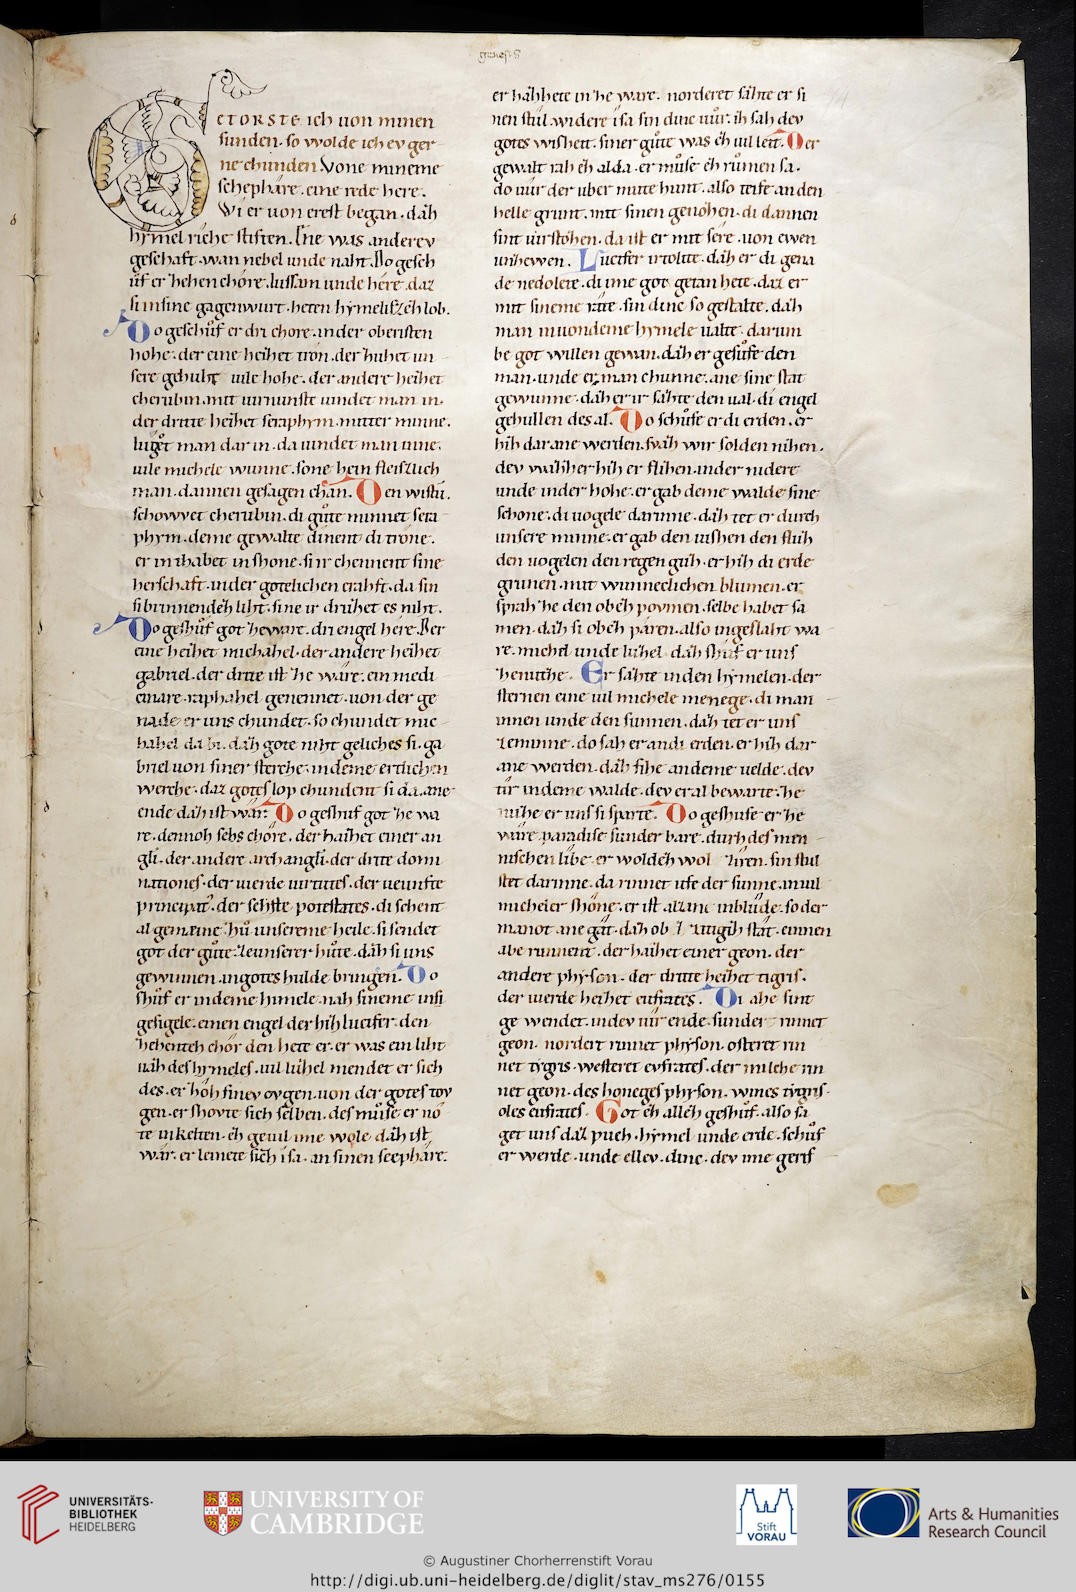 genesis
G
ETORSTE ich uon minen
sunden. so wolde ich ev ger
ne chunden. Vone mineme
schephâre. eine rede here.
Wi er uon erest began. dah
hymel riche stiften. Ðne was anderev
geschaft. wan nebel unde naht. Do gesch
ůf er hehen chôre. lussam unde hére. daz
si insine gagenwurt. heten hymelisz ch lob.
Do geschůf er dri chore. inder oberisten
hohe. der eine heihet tron. der huhet un
sere gehuht uile hohe. der andere heihet
cherubin. mit uirnunste uindet man in.
der dritte heihet seraphym. mitter minne.
lůget man dar in. da uindet man inne.
uile michele wunne. sone hein fleislich
man. dannen gesagen chan. Den wistů.
schowet cherubin. di gůte minnet sera
phym. deme gewalte dinent di trone.
er inthabet in shone. si ir chennent sine
herschaft. inder gotelichen crahft. da sin
si brinnendeh liht. sine ir druhet es niht.
Do geshůf got heware. dri engel hére. Der
eine heihet michahel. der andere heihet
gabriel. der dritte ist he wâre. ein medi
cinare. raphahel genennet. uon der ge
nade er uns chundet. so chundet mic
hahel da bi. dah gote niht geliches si. ga
briel uon siner sterche. indeme ertlichen
werche. daz gotes lop chundent si da. ane
ende dah ist wâr. Do geshuf got he wa
re. dennoh sehs chôre. der haihet einer an
gli. der andere archangli. der dritte domi
nationes. der uierde uirtutes. der ueunfte
principat'. der sehste potestates. di schent
al gemeine. hů unsereme heile. si sendet
got der gůte. ze unserer hůte. dah si uns
gewinnen. ingotes hulde bringen. Do
shůf er indeme himele. nah sineme insi
gesigele. einen engel der hih lucifer. den
hehenteh chôr den hete er. er was ein liht
uah des hymeles. uil luhel mendet er sich
des. er hôh sinev ovgen. uon der gotes tov
gen. er shovte sich selben. des můse er no
te inkelten. eh geuil ime wole dah ist
wâr. er leinete sich i sa. an sinen scephâre.
er hahhete in he wâre. norderet sahte er si
nen stůl. widere i sa sin dinc uůr. ih sah dev
gotes wisheit. siner gůte was eh uil leit. Der
gewalt rah eh alda. er můse eh růmen sa.
do uůr der uber mute hunt. also teife an den
helle grunt. mit sinen genôhen. di dannen
sint uirstôhen. da ist er mit sere. uon ewen
unhewen. Lucifer irtolite. dah er di gena
de nedolete. di ime got getan hete. daz er
mit sineme râte. sin dinc so gestalte. dah
man inuondeme hymele ualte. darum
be got willen gewan. dah er gesůfe den
man. unde er man chunne. ane sine stat
gewunne. dah er ir sahte den ual. di engel
gehullen des al. Do schůfe er di erden. er
hih dar ane werden. swah wir solden nihen.
dev wahher hih er flihen. inder nidere
unde inder hohe. er gab deme walde sine
schone. di uogele darinne. dah tet er durch
unsere minne. er gab den uishen den fluh
den uogelen den regen guh. er hih di erde
grunen. mit wunneclichen blumen. er
sprah he den obeh povmen. selbe habet sa
men. dah si obeh pâren. also ingeslaht wa
re. michil unde luhel. dah shůf er uns
henuthe. Er sahte inden hymelen. der
sternen eine uil michele menege. di man
innen unde den sunnen. dah tet er uns
ze minne. do sah er andi erden. er hih dar
ane werden. dah fihe andeme uelde. dev
tir indeme walde. dev er al bewarte. he
nuhe er uns si sparte. Do geshufe er he
wâre. paradise sunder bare. durh des men
nischen lîbe. er woldeh wol zîren. sin stul
stet darinne. da rinnet ufe der sunne. in uil
micheler shône. er ist alzane inblude. so der
manot ane gât. dah ob zitigih stat. einnen
abe rinnent. der haihet einer geon. der
andere physon. der dritte heihet tigris.
der uierde heihet eufrates. Di ahe sint
ge wendet. indev uir ende. sunder rinnet
geon. nordert rinnet physon. osteret rin
net tygris. westeret evfrates. der milche rin
net geon. des honeges physon. wines tygris.
oles eufrates. Got eh alleh geshůf. also sa
get uns daz pueh. hymel unde erde. schůf
er werde. unde ellev. dinc. dev ime geris
UNIVERSITÄTS-
BIBLIOTHEK
HEIDELBERG
UNIVERSITY OF
CAMBRIDGE
Stift
VORAU
Arts & Humanities
Research Council
© Augustiner Chorherrenstift Vorau
http://digi.ub.uni-heidelberg.de/diglit/stav_ms276/0155